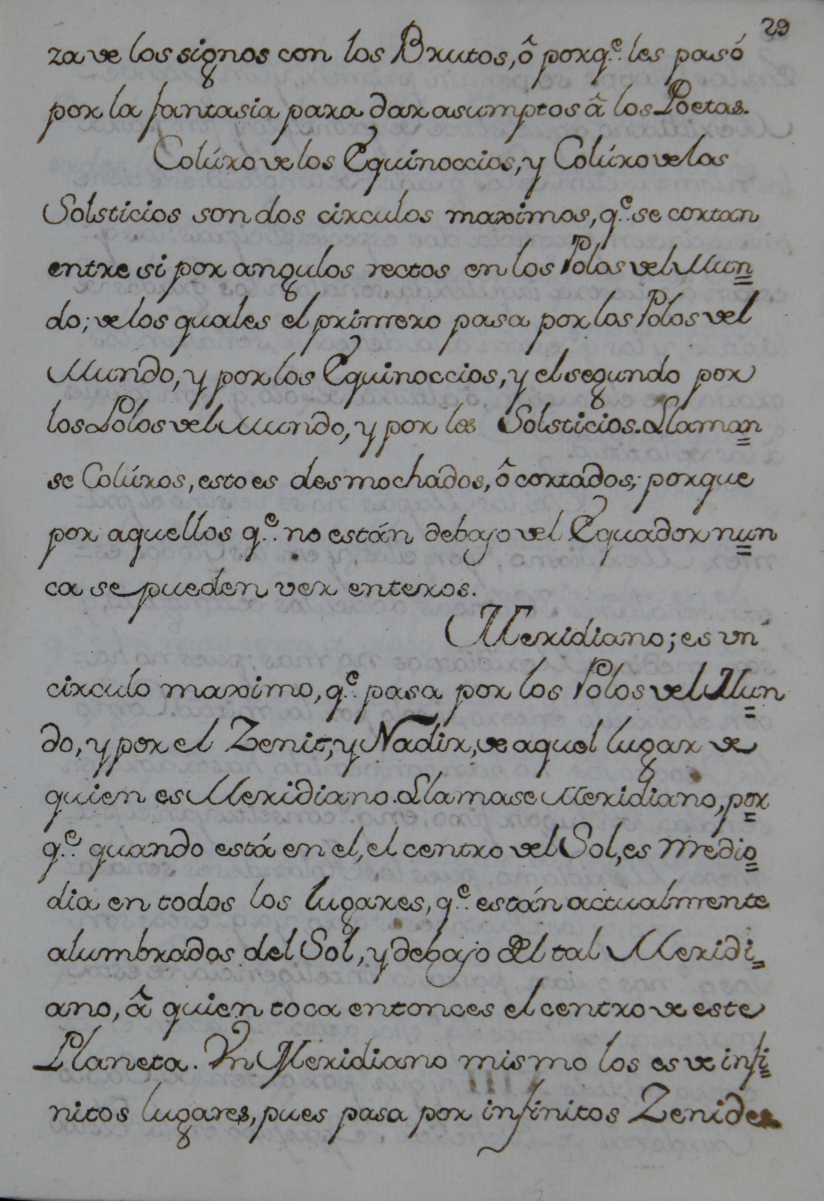 29
za de los signos con los Brutos, ô porq.e les pasó
por la fantasia para dar asumptos â los Poetas.
Colúro de los Equinoccios, y Colúro de las
Solsticios son dos circulos maximos, q.e se cortan
entre si por angulos rectos en los Polos del Mun=
do; de los quales el primero pasa por los Polos del
Mundo, y por los Equinoccios, y el segundo por
los Polos del Mundo, y por los Solsticios. Llaman=
se Colúros, esto es desmochados, ô cortados; porque
por aquellos q.e no están debajo del Equador nun=
ca se pueden ver enteros.
Meridiano; es un
circulo maximo, q.e pasa por los Polos del Mun=
do, y por el Zenit, y Nadir, de aquel lugar de
quien es Meridiano. Llamase Meridiano, por=
q.e quando está en el, el centro del Sol, es Medio=
dia en todos los lugares, q.e están actualmente
alumbrados del Sol, y debajo del tal Meridi=
ano, â quien toca entonces el centro de este
Planeta. Un Meridiano mismo los es de infi=
nitos lugares, pues pasa por infinitos Zenides